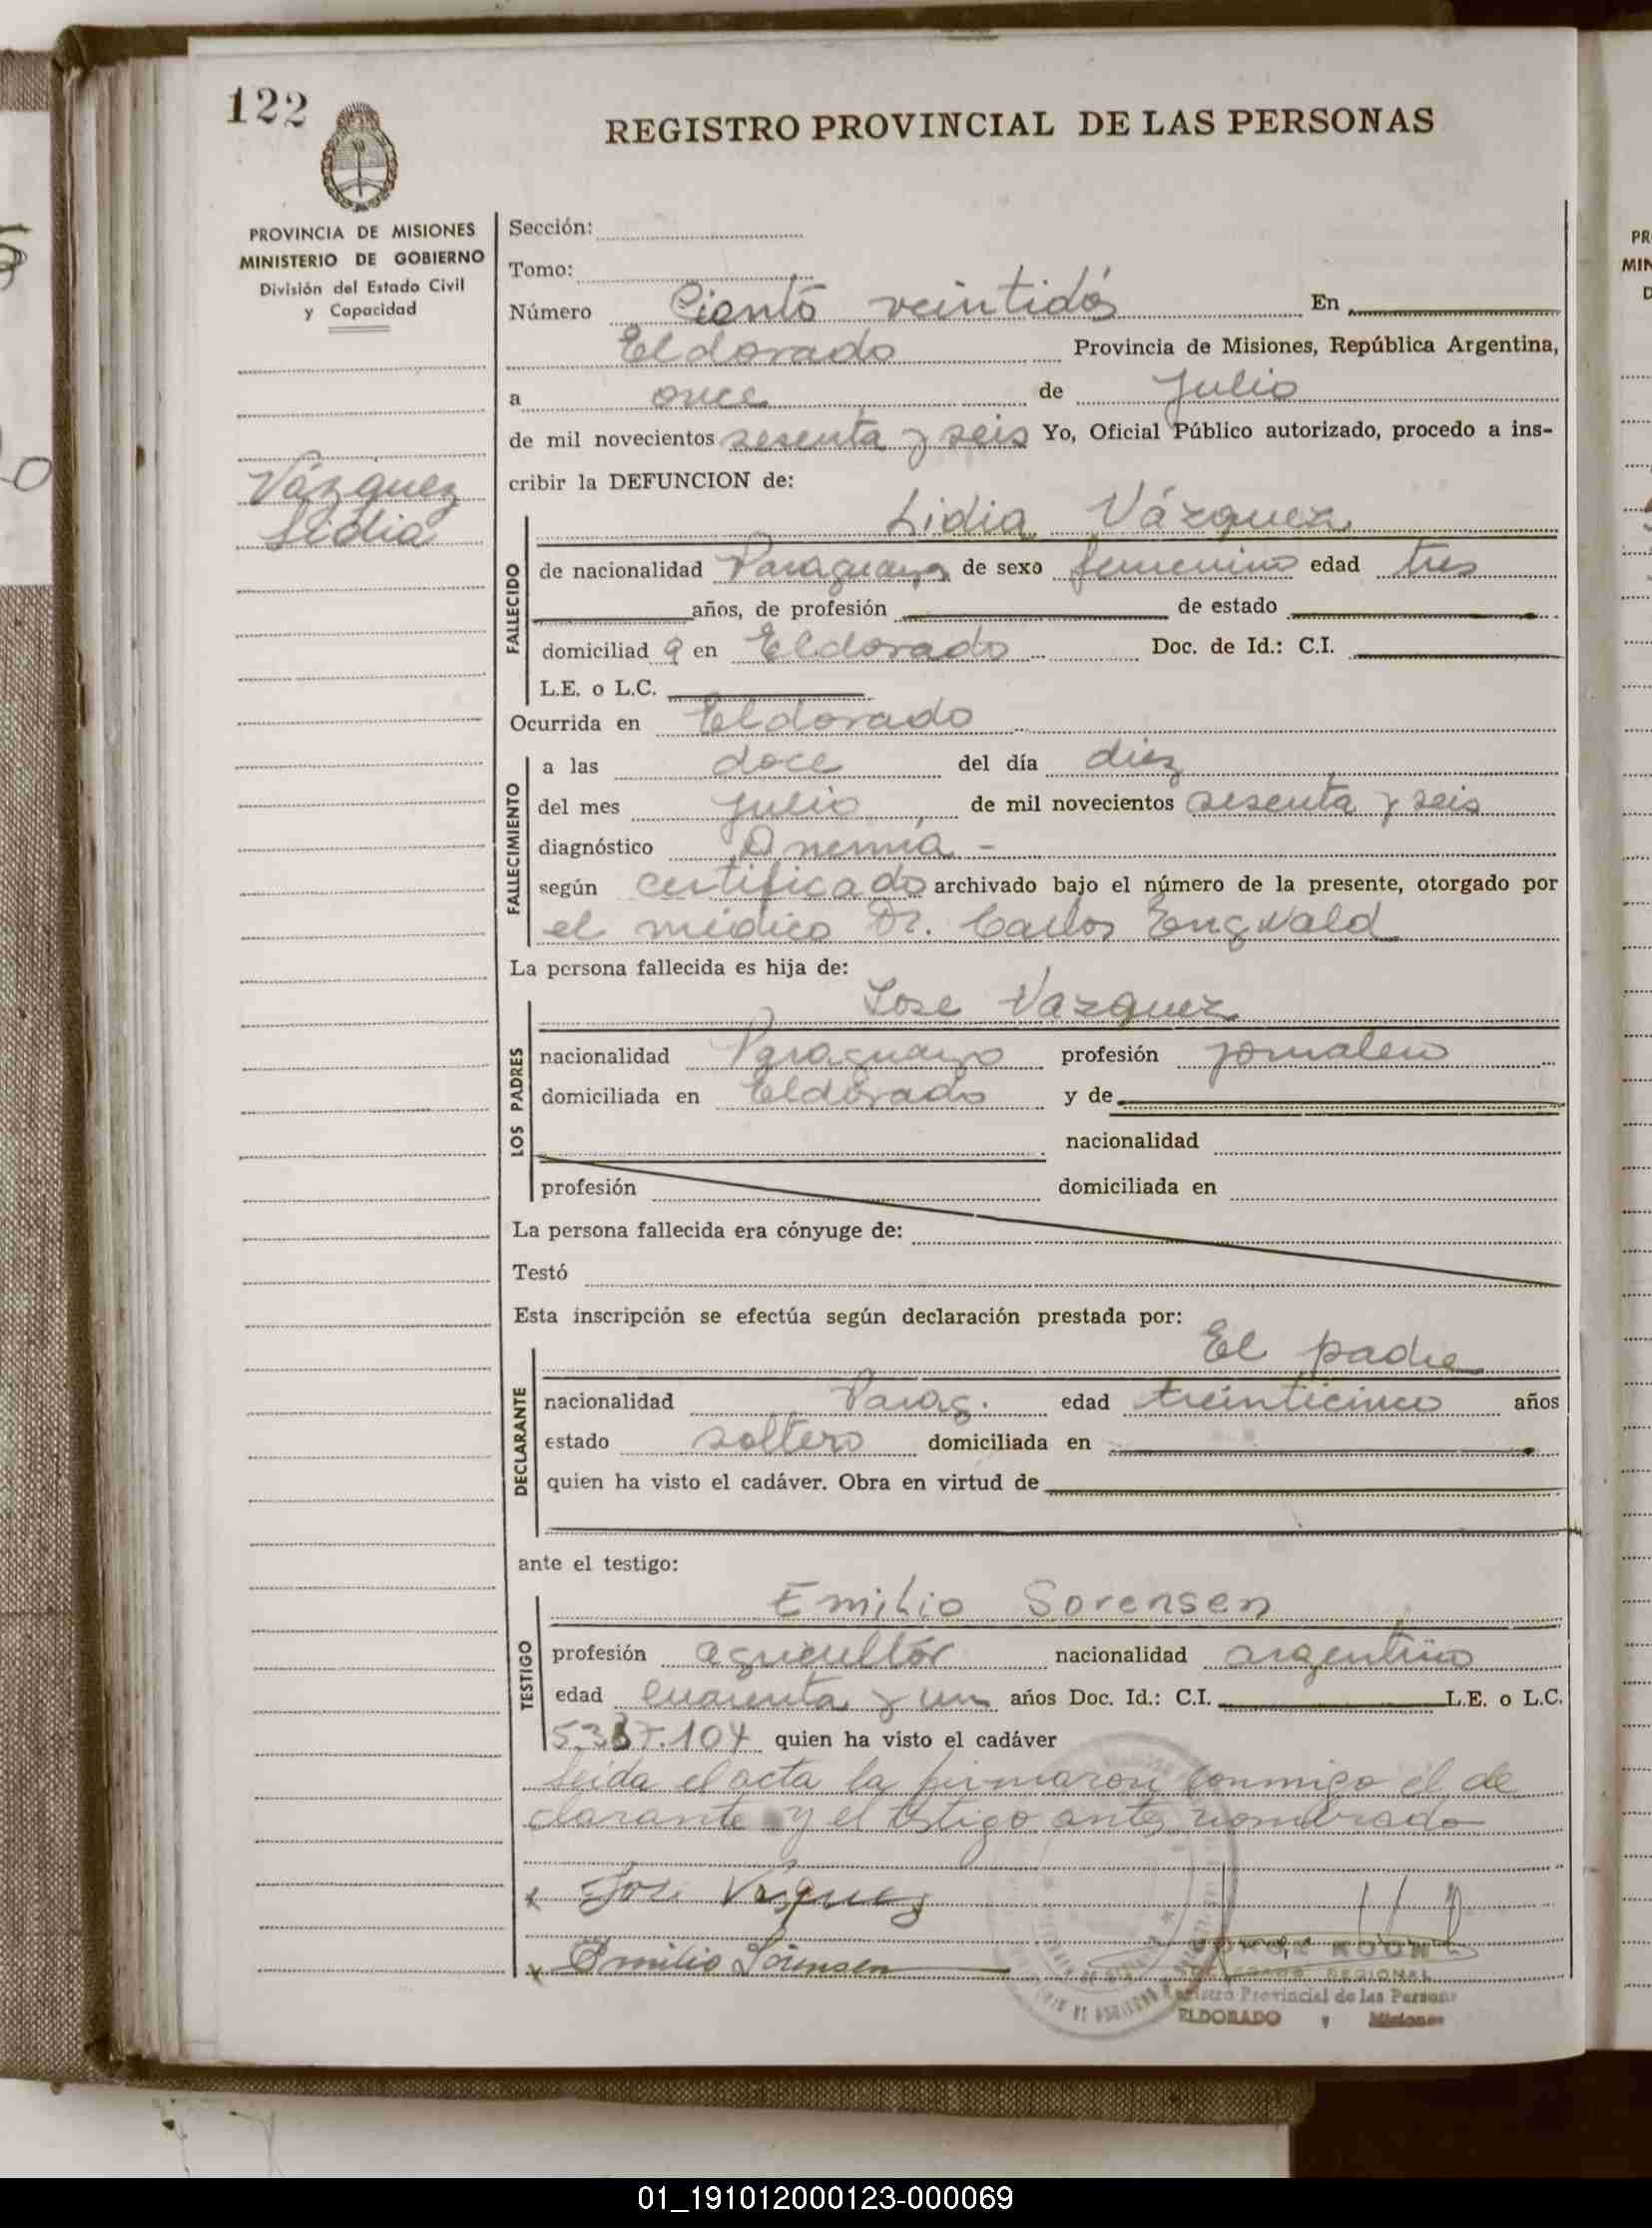 122
REGISTRO PROVINCIAL DE LAS PERSONAS
PROVINCIA DE MISIONES
MINISTERIO DE GOBIERNO
División del Estado Civil
y Capacidad
Vázquez
Lidia
Sección:
Tomo:
Número Ciento veintidós En
Eldorado Provincia de Misiones, República Argentina,
a once de Julio
de mil novecientos sesenta y seis Yo, Oficial Público autorizado, procedo a ins-
cribir la DEFUNCION de:
Lidia Vázquez
FALLECIDO
de nacionalidad Paraguaya de sexo femenino edad tres
años, de profesión de estado
domiciliad a en Eldorado Doc. de Id.: C.I.
L.E. o L.C.
Ocurrida en Eldorado
FALLECIMIENTO
a las doce del día diez
del mes julio de mil novecientos sesenta y seis
diagnóstico Anemia -
según certificado archivado bajo el número de la presente, otorgado por
el médico Dr. Carlos Engwald
La persona fallecida es hija de:
Jose Vazquez
LOS PADRES
nacionalidad Paraguayo profesión jornalero
domiciliada en Eldorado y de
nacionalidad
profesión domiciliada en
La persona fallecida era cónyuge de:
Testó
Esta inscripción se efectúa según declaración prestada por:
El padre
DECLARANTE
nacionalidad Parag. edad treinticinco años
estado soltero domiciliada en
quien ha visto el cadáver. Obra en virtud de
ante el testigo:
Emilio Sorensen
TESTIGO
profesión agricultor nacionalidad argentino
edad cuarenta y un años Doc. Id.: C.I. L.E. o L.C.
quien ha visto el cadáver
Leida el acta la firmaron conmigo el de
clarante y el testigo antes nombrado
x José Vazquez
x Emilio Sörensen
REGIONAL
Registro Provincial de las Personas
ELDORADO Misiones
01_191012000123-000069